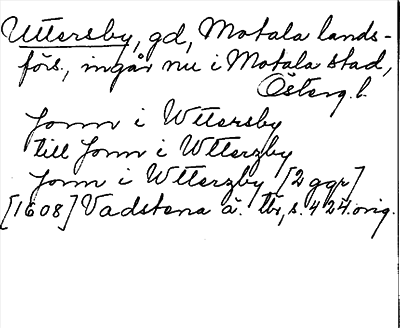 Uttersby, gd, Motala lands-
förs., ingår nu i Motala stad,
Österg. l.
Jonn i Wttersby
till Jonn i Wtterzby
Jonn i Wtterzby [2 ggr]
[1608] Vadstena ä. tb, s. 424. orig.